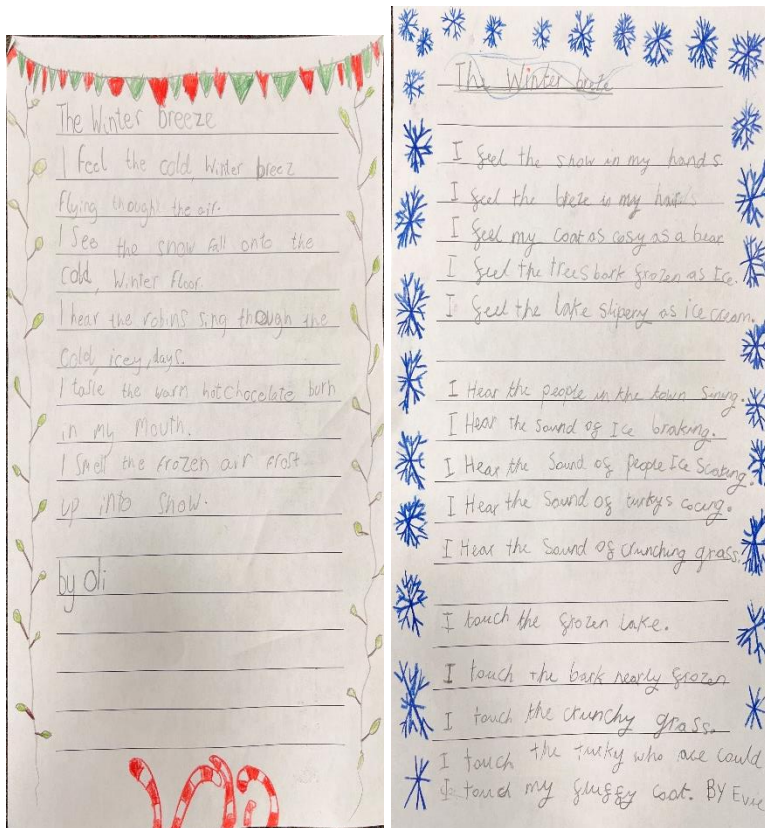 The Winter breeze
I feel the cold, Winter breez
flying though the air.
I see the snow fall onto the
cold, Winter floor.
I hear the robins sing through the
cold, icey, days.
I taste the warm hotchocelate burn
in my mouth.
I smell the frozen air frost
up into snow.
by Oli
The Winter breze
I feel the snow in my hands
I feel the breze in my hairs
I feel my coat as cosy as a bear
I feel the trees bark frozen as Ice.
I feel the lake slipery as ice cream.
I Hear the people in the town Sining.
I Hear the Sound of Ice braking.
I Hear the Sound of people Ice Scating.
I Hear the Sound of turkys cocing.
I Hear the Sound of crunching grass.
I touch the frozen Lake.
I touch the bark nearly frozen
I touch the crunchy grass.
I touch the turky who are could
I touch my fluffy coat. BY Evie